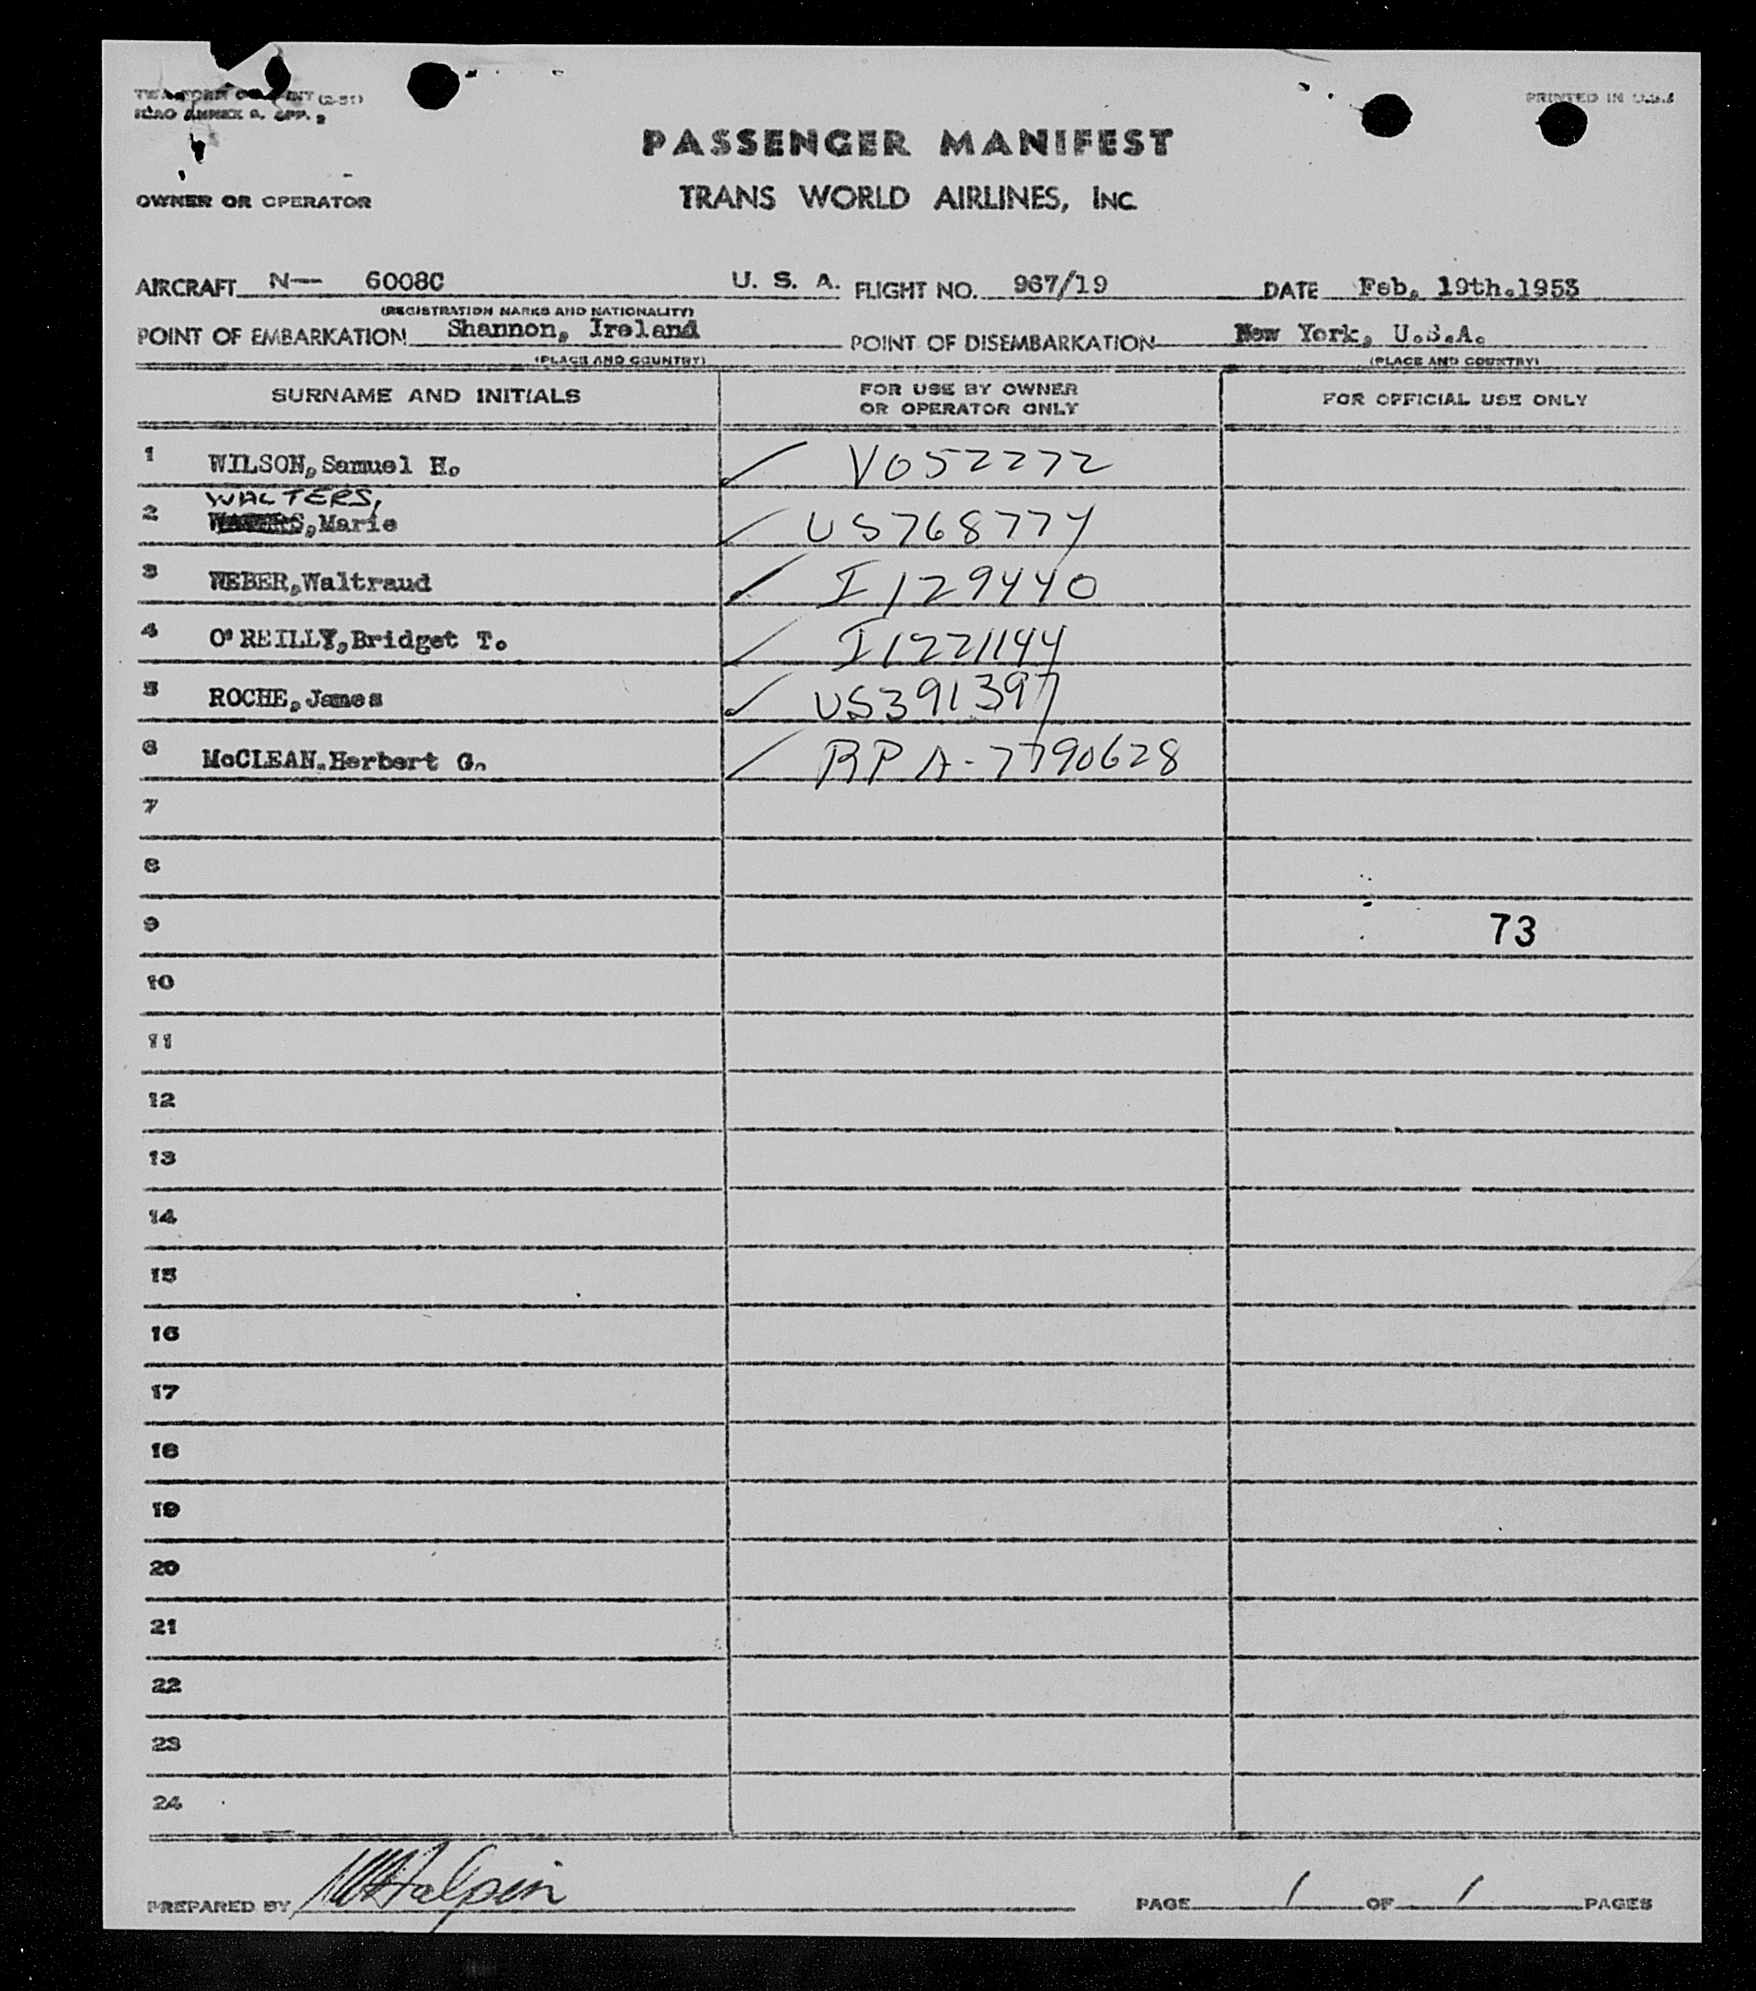 (2-51)
ICAO ANNEX 9, APP. 2
PRINTED IN U.S.A
PASSENGER MANIFEST
OWNER OR OPERATOR
TRANS WORLD AIRLINES, INC.
AIRCRAFT N— 6008C U. S. A. FLIGHT NO. 967/19 DATE Feb. 19th.1953
(REGISTRATION MARKS AND NATIONALITY)
POINT OF EMBARKATION Shannon, Ireland POINT OF DISEMBARKATION New York, U.S.A.
(PLACE AND COUNTRY) (PLACE AND COUNTRY)
SURNAME AND INITIALS FOR USE BY OWNER OR OPERATOR ONLY FOR OFFICIAL USE ONLY
1 WILSON,Samuel H. ✓ V052272
WALTERS,
2 ,Marie ✓ US76877Y
3 WEBER,Waltraud ✓ I129440
4 O'REILLY,Bridget T. ✓ I1221144
5 ROCHE,James ✓ US391397
6 McCLEAN.Herbert G. ✓ RPA-7790628
7
8
9 73
10
11
12
13
14
15
16
17
18
19
20
21
22
23
24
PREPARED BY Halpin PAGE 1 OF 1 PAGES